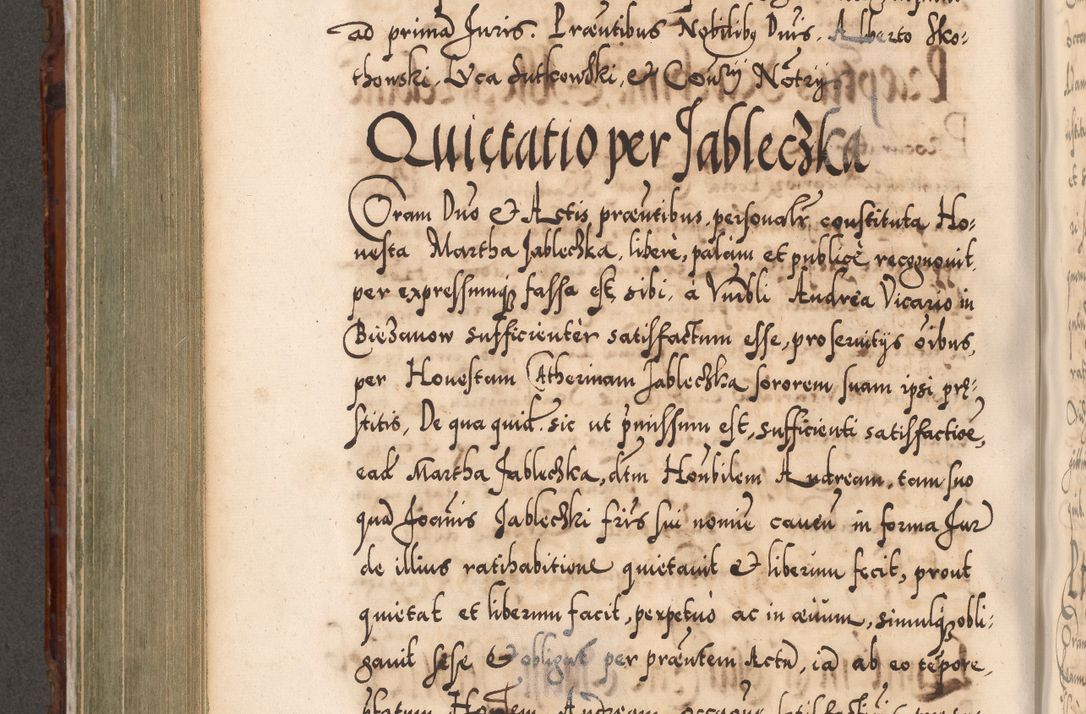 ad primā Juris. Præntibus Nobilibq Dnis. Alberto Sko:
thowski, Lyca Sutkowski, et Consrij Notrij.
Quietatio per Jableczka
Coram Dno et Actis præntibus personalr constituta Ho:
nesta Martha Jableczka, liberè, palàm et publicè recognouit,
per expressumq fassa est, sibi, à Vnrbli Andrea Vicario in
Biezanow sufficientèr satisfactum esse, pro seruitijs oibus,
per Honestam Catherinam Jableczka sororem suam ipsi prę:
stitis, De qua quid. sic ut pmissum est, sufficienti satisfactioe,
ead Martha Jableczka, dtm Honbilem Andream, tam suo
quā Joānis Jableczki fris sui nomie cauen in forma Jur
de illius ratihabitione quietauit et liberum fecit, prout
quietat et liberum facit, perpetuò ac in æuum, simulq obli:
gauit sese et obligat per præntem Actū, iā ab eo tēpore,
Andream